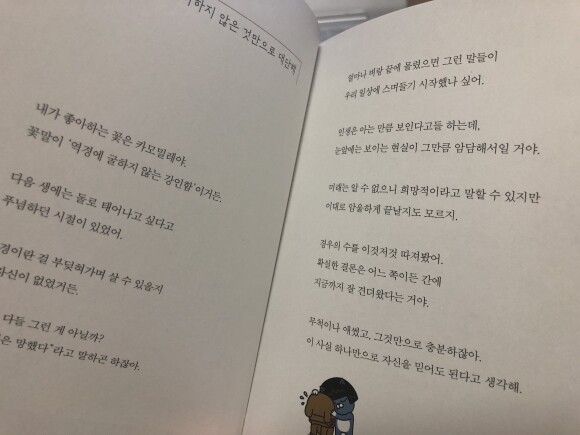 하지 않은 것만으로 대단해
내가 좋아하는 꽃은 카모밀레야.
꽃말이 '역경에 굴하지 않는 강인함'이거든.
다음 생에는 돌로 태어나고 싶다고
푸념하던 시절이 있었어.
경이란 걸 부딪혀가며 살 수 있을지
자신이 없었거든.
다들 그런 게 아닐까?
은 망했다"라고 말하곤 하잖아.
얼마나 벼랑 끝에 몰렸으면 그런 말들이
우리 일상에 스며들기 시작했나 싶어.
인생은 아는 만큼 보인다고들 하는데,
눈앞에는 보이는 현실이 그만큼 암담해서일 거야.
미래는 알 수 없으니 희망적이라고 말할 수 있지만
이대로 암울하게 끝날지도 모르지.
경우의 수를 이것저것 따져봤어.
확실한 결론은 어느 쪽이든 간에
지금까지 잘 견뎌왔다는 거야.
무척이나 애썼고, 그것만으로 충분하잖아.
이 사실 하나만으로 자신을 믿어도 된다고 생각해.